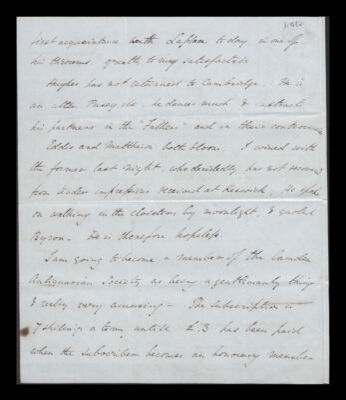 first acquaintance with Laplace to day in one of
his theorems, greatly to my satisfaction
Hughes has not returned to Cambridge. He is
an utter Puseyite, he dances much & instructs
his partners in the "Fathers" and in their controversies
Eddis and Mathison both bloom. I wined with
the former last night, who decidedly has not recovered
from tender impressions received at Keswick. He
on walking in the cloisters by moonlight, & quoted
Byron. He is therefore hopeless.
I am going to become a member of the Camden
Antiquarian Society, as being a gentlemanly thing
& really very amusing – The subscription is
7 shillings a term, untill £.3 has been paid
when the subscriber becomes an honorary member